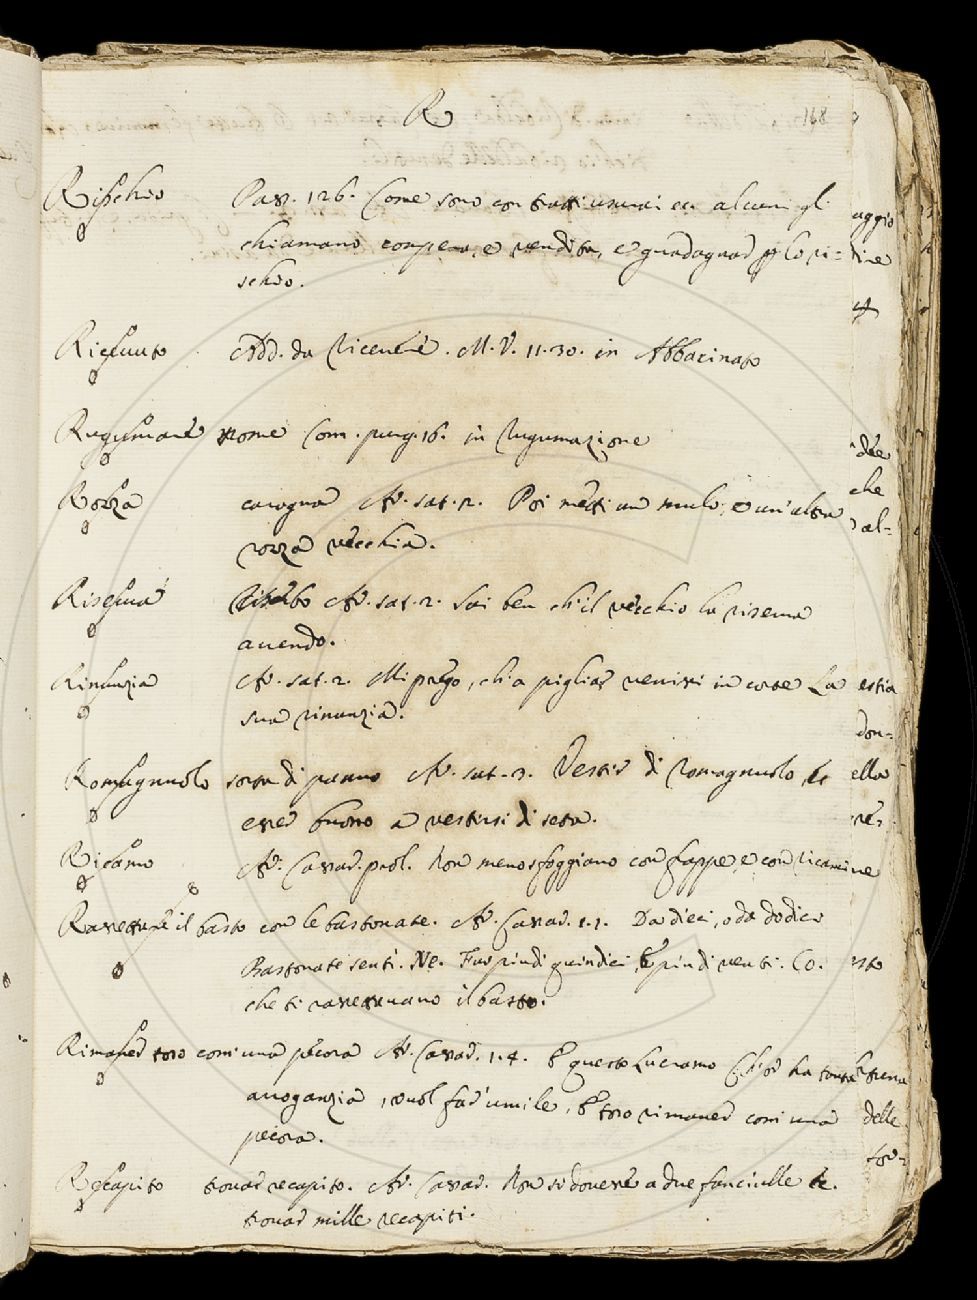 R
168
Rischio Pass. 126. Come sono contratti usurai cu alcuni gli
chiamano compera, e vendita, e guadagnar p lo ri=
schio.
Ricevuto Add. da Ricevere. M. V. 11. 30. in Abbacinato
Rugumare nome Com. purg. 16. in Rugumazione
Rozza carogna Ar. sat. 2. Poi metti un mulo, e un'altra
rozza vecchia.
Riserva Riserbo Ar. sat. 2. Sai ben ch'il vecchio la riserva
avendo.
Rinunzia Ar. sat. 2. Mi prego, ch'a pigliar venissi in corte La
sua rinunzia.
Romagnuolo sorta di panno Ar. sat. 3. Vestir di Romagnuolo, &
esser buono a vestirsi di seta.
Ricamo Ar. Cassar. prol. Non meno sfoggiano con frappe, e con Ricami
Rassettare il basto con le bastonate. Ar. Cassar. 1.1. Da dieci, o da dodici
Bastonate senti. Ne. Fur piu di quindici, E piu di venti. Co.
che ti rassettavano il basto.
Rimaner toso com' una pecora Ar. Cassar. 1.4. E questo Lucramo Ch'or ha tanta
arroganzia, vuol far' umile, E toso rimaner com' una
pecora.
Recapito trovar recapito. Ar. Cassar. Non si dovere a due fanciulle &.
trovar mille recapiti.
aggio
dire
che
al=
estia
don=
ella
re=
ne
sto
delle
tor=